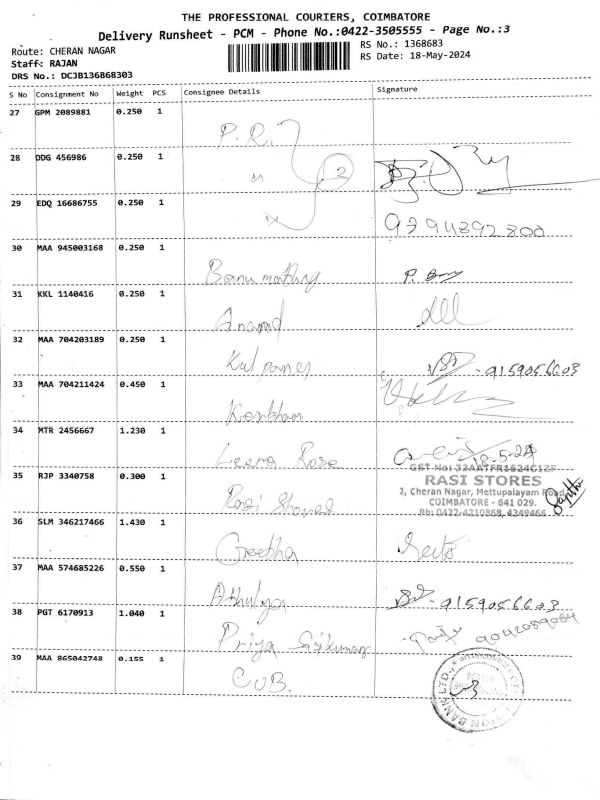 THE PROFESSIONAL COURIERS, COIMBATORE
Delivery Runsheet - PCM - Phone No.:0422-3505555 - Page No.:3
Route: CHERAN NAGAR RS No.: 1368683
Staff: RAJAN RS Date: 18-May-2024
DRS No.: DCJB136868303
S No Consignment No Weight PCS Consignee Details Signature
27 GPM 2089881 0.250 1 P.R.
28 DDG 456986 0.250 1 " 2
29 EDQ 16686755 0.250 1 9394892800
30 MAA 945003168 0.250 1 Banumathy
31 KKL 1140416 0.250 1 Anand
32 MAA 704203189 0.250 1 Kalpanes - 9159056603
33 MAA 704211424 0.450 1
34 MTR 2456667 1.230 1 Leema Rose 18-5-24
GST No: 33AATFR1624G1ZF
35 RJP 3340758 0.300 1 Rasi Stores RASI STORES
2, Cheran Nagar, Mettupalayam Road,
COIMBATORE - 641 029.
Ph: 0422-4210868, 4349466
36 SLM 346217466 1.430 1 Geetha Geeta
37 MAA 574685226 0.550 1 Athulya - 9159056603
38 PGT 6170913 1.040 1 Priya Srikumar 9042089084
39 MAA 865042748 0.155 1 CUB.
UNION BANK LTD.